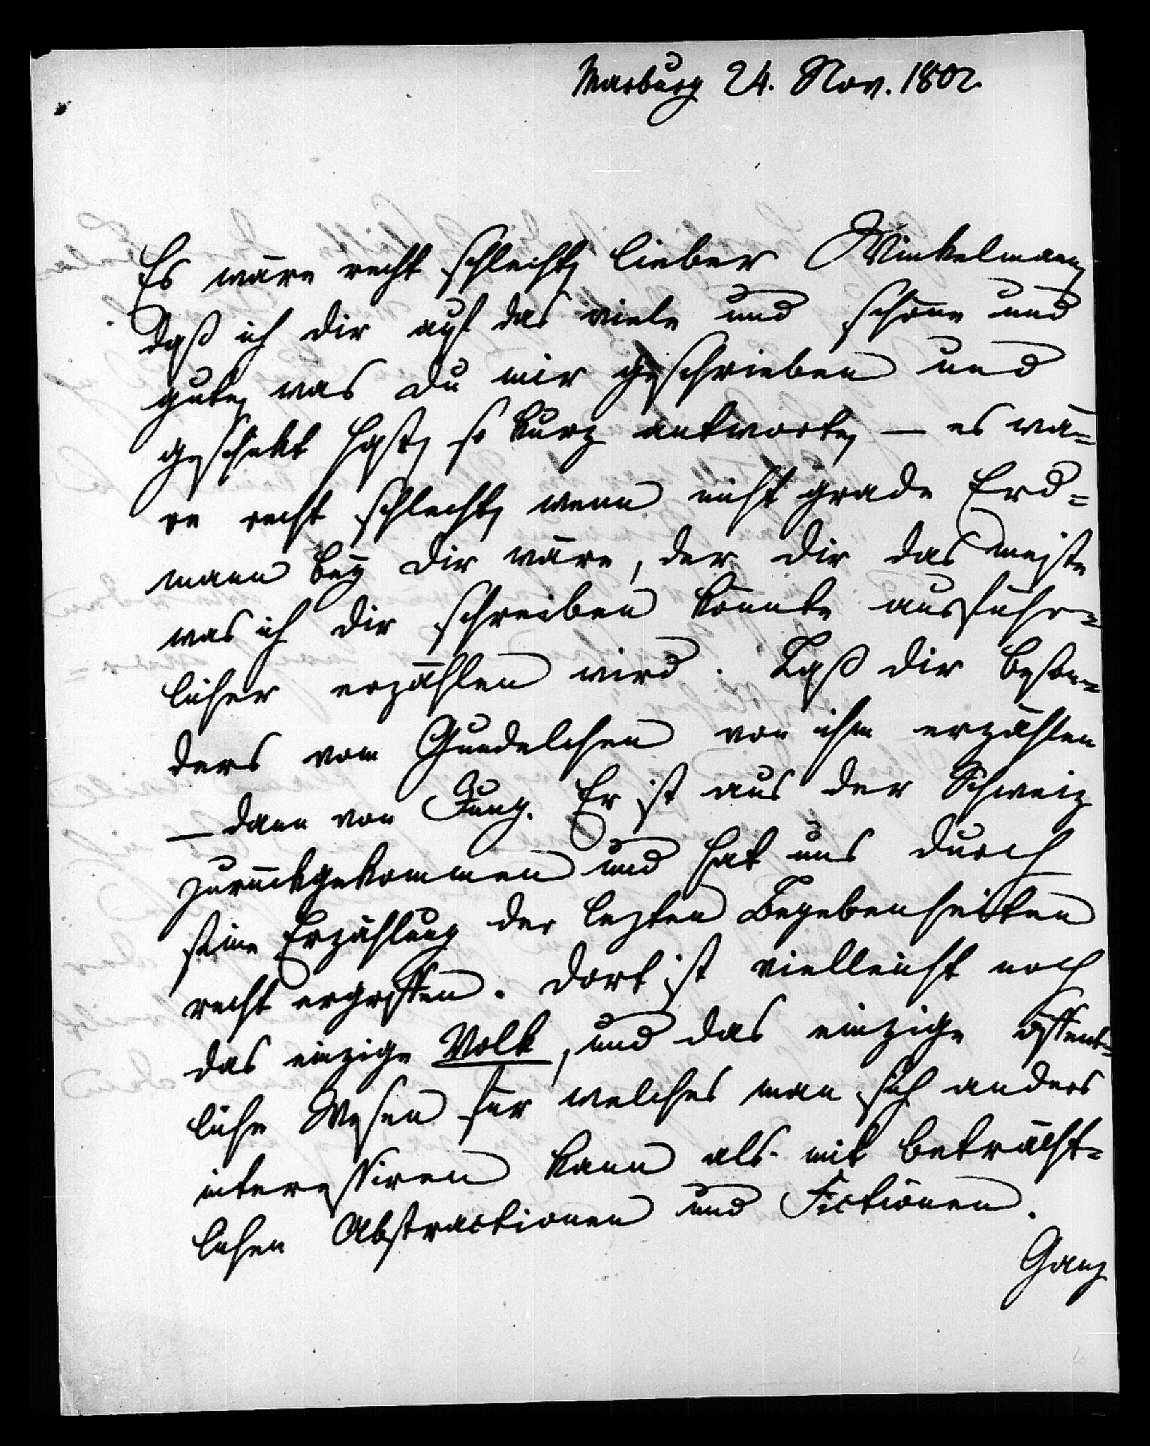 Marburg 24. Nov. 1802.
Es wäre recht schlecht, lieber Winkelmann,
daß ich dir auf das viele und schöne und
gute, was du mir geschrieben und
geschikt hast, so kurz antworte, — es wä=
re recht schlecht, wenn nicht grade Erd=
mann bey dir wäre, der dir das meiste
was ich dir schreiben könnte ausführ=
licher erzählen wird. Laß dir beson=
ders vom Gundelchen von ihm erzählen
— dann von Jung. Er ist aus der Schweiz
zurückgekommen und hat uns durch
seine Erzählung der lezten Begebenheiten
recht ergriffen. Dort ist vielleicht noch
das einzige Volk, und das einzige öffent=
liche Wesen für welches man sich anders
interessiren kann als mit beträcht=
lichen Abstractionen und Fictionen.
Ganz